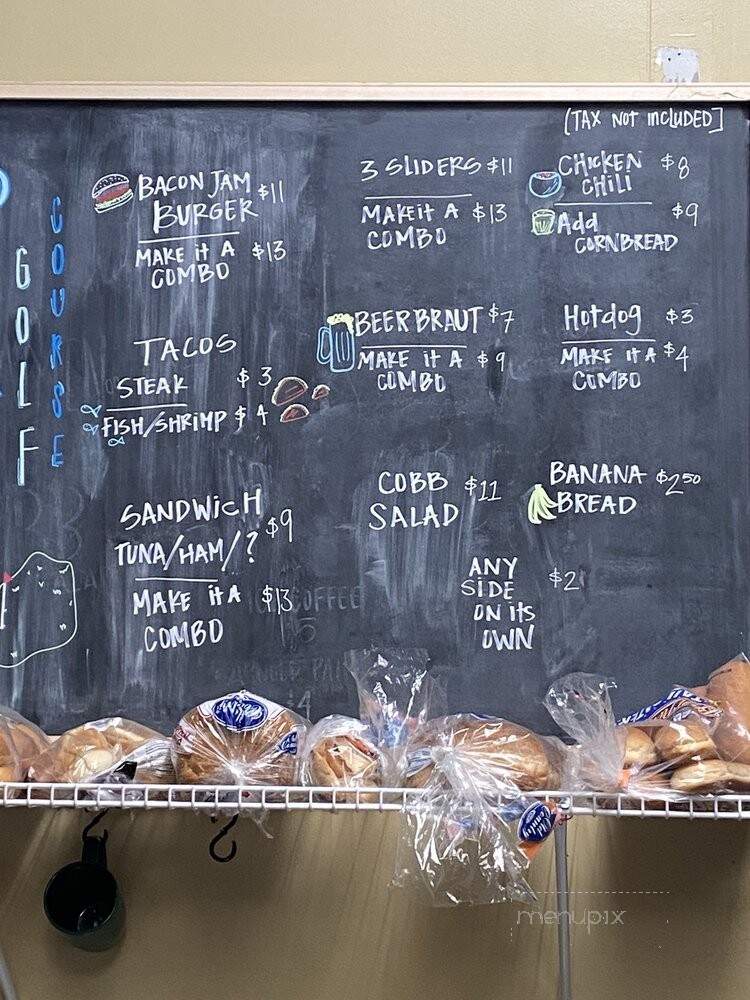 [TAX NOT INCLUDED]
GOLF
COURSE
BACON JAM
BURGER $11
MAKE IT A
COMBO $13
TACOS
STEAK $3
FISH/SHRIMP $4
SANDWICH
TUNA/HAM/? $9
MAKE IT A
COMBO $13
3 SLIDERS $11
MAKE IT A
COMBO $13
BEER BRAUT $7
MAKE IT A
COMBO $9
COBB
SALAD $11
ANY
SIDE
ON ITS
OWN $2
CHICKEN
CHILI $8
Add
CORNBREAD $9
Hotdog $3
MAKE IT A
COMBO $4
BANANA
BREAD $2.50
COFFEE
menupix